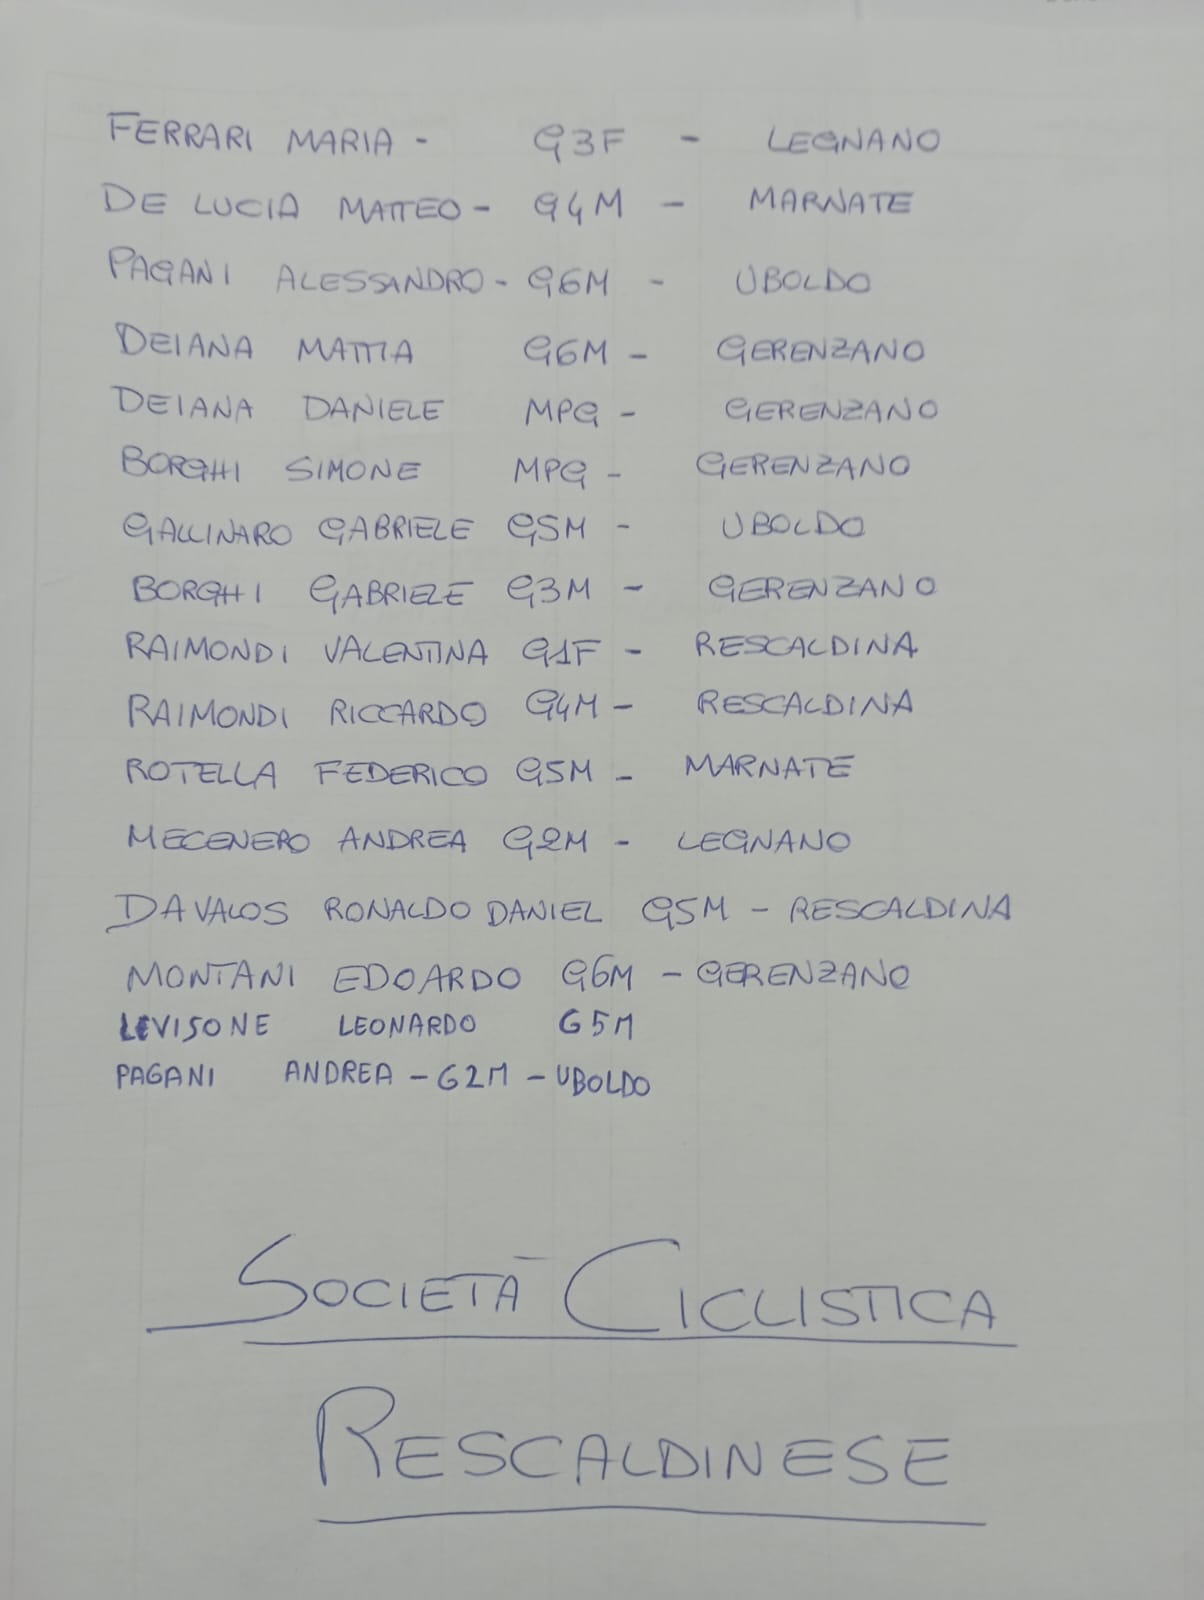 FERRARI MARIA - G3F - LEGNANO
DE LUCIA MATTEO - G4M - MARNATE
PAGANI ALESSANDRO - G6M - UBOLDO
DEIANA MATTIA G6M - GERENZANO
DEIANA DANIELE MPG - GERENZANO
BORGHI SIMONE MPG - GERENZANO
GALLINARO GABRIELE G5M - UBOLDO
BORGHI GABRIELE G3M - GERENZANO
RAIMONDI VALENTINA G1F - RESCALDINA
RAIMONDI RICCARDO G4M - RESCALDINA
ROTELLA FEDERICO G5M - MARNATE
MECENERO ANDREA G2M - LEGNANO
DAVALOS RONALDO DANIEL G5M - RESCALDINA
MONTANI EDOARDO G6M - GERENZANO
LEVISONE LEONARDO G5M
PAGANI ANDREA - G2M - UBOLDO
SOCIETÀ CICLISTICA
RESCALDINESE